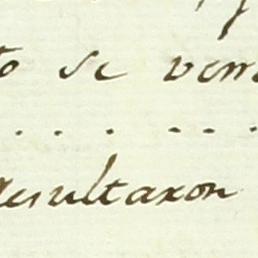 to se verr
. . . . - - .
Resultaron